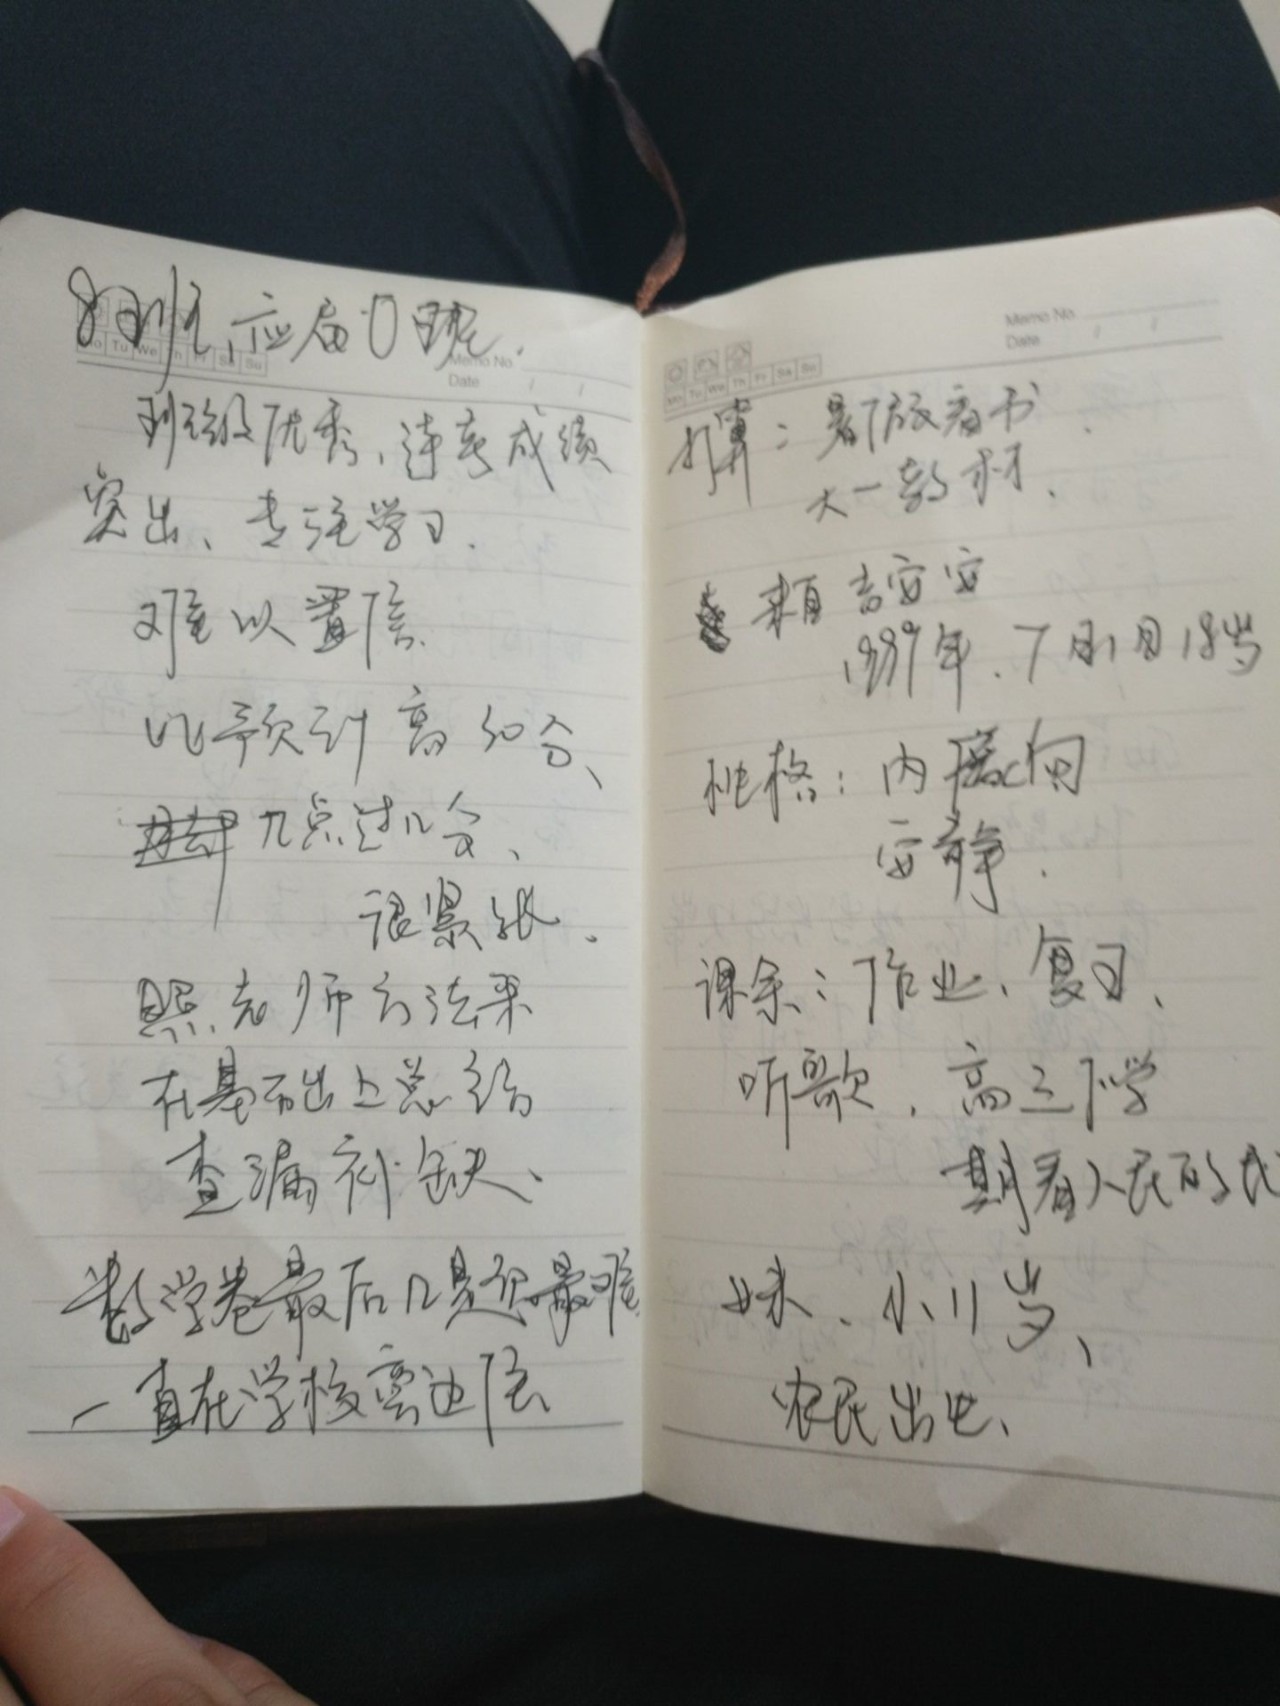 8班, 应届10班.
Mo Tu We Th Fr Sa Su
Memo No
Date
班级优秀, 连考成绩
突出、专注学习.
难以置信.
比预计高30分、
九点过几分、
很紧张.
照老师方法来
在基础上总结
查漏补缺、
数学卷最后几题最难
一直在学校旁边住
Memo No.
Date
Mo Tu We Th Fr Sa Su
打算: 暑假看书.
大一教材.
来自 吉安
1997年.7月 18岁
性格: 内向
安静.
课余: 作业、复习、
听歌, 高三下学
期看人民的
妹、小11岁、
农民出生、